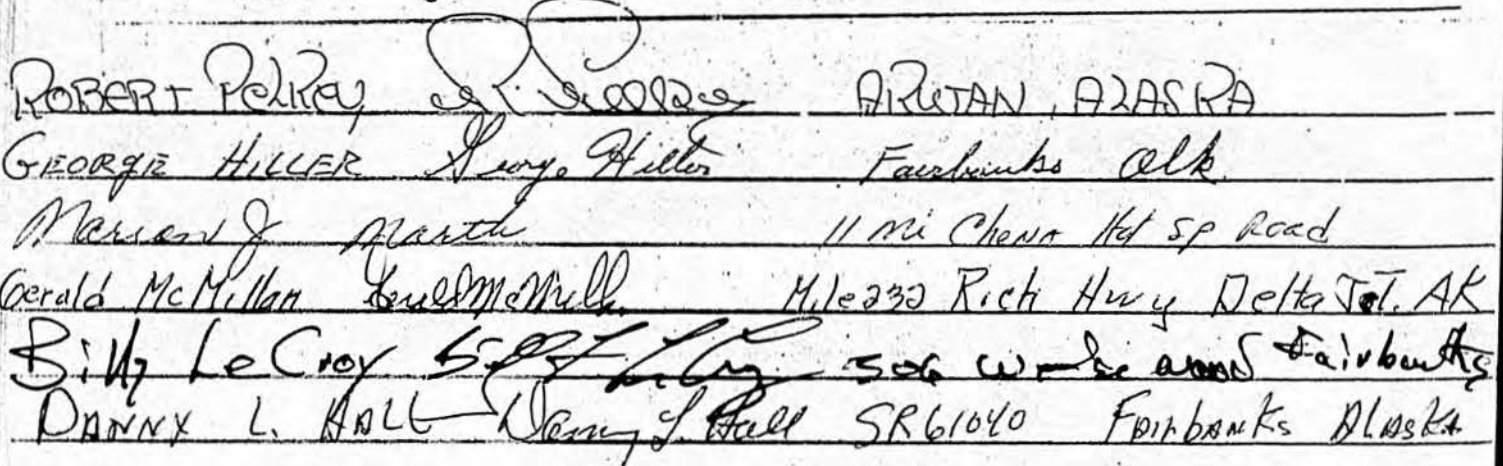 ROBERT PELKEY R Pelkey AKUTAN, ALASKA
GEORGE HILLER George Hiller Fairbanks alk
Marion J Marth 11 mi Chena Hd Sp Road
Gerald McMillan Gerald McMillan Mile 232 Rich Hwy Delta Jct. AK
Billy LeCroy Billy LeCroy 506 Fairbanks
DANNY L. HALL Danny L. Hall SR61040 FAIRBANKS ALASKA